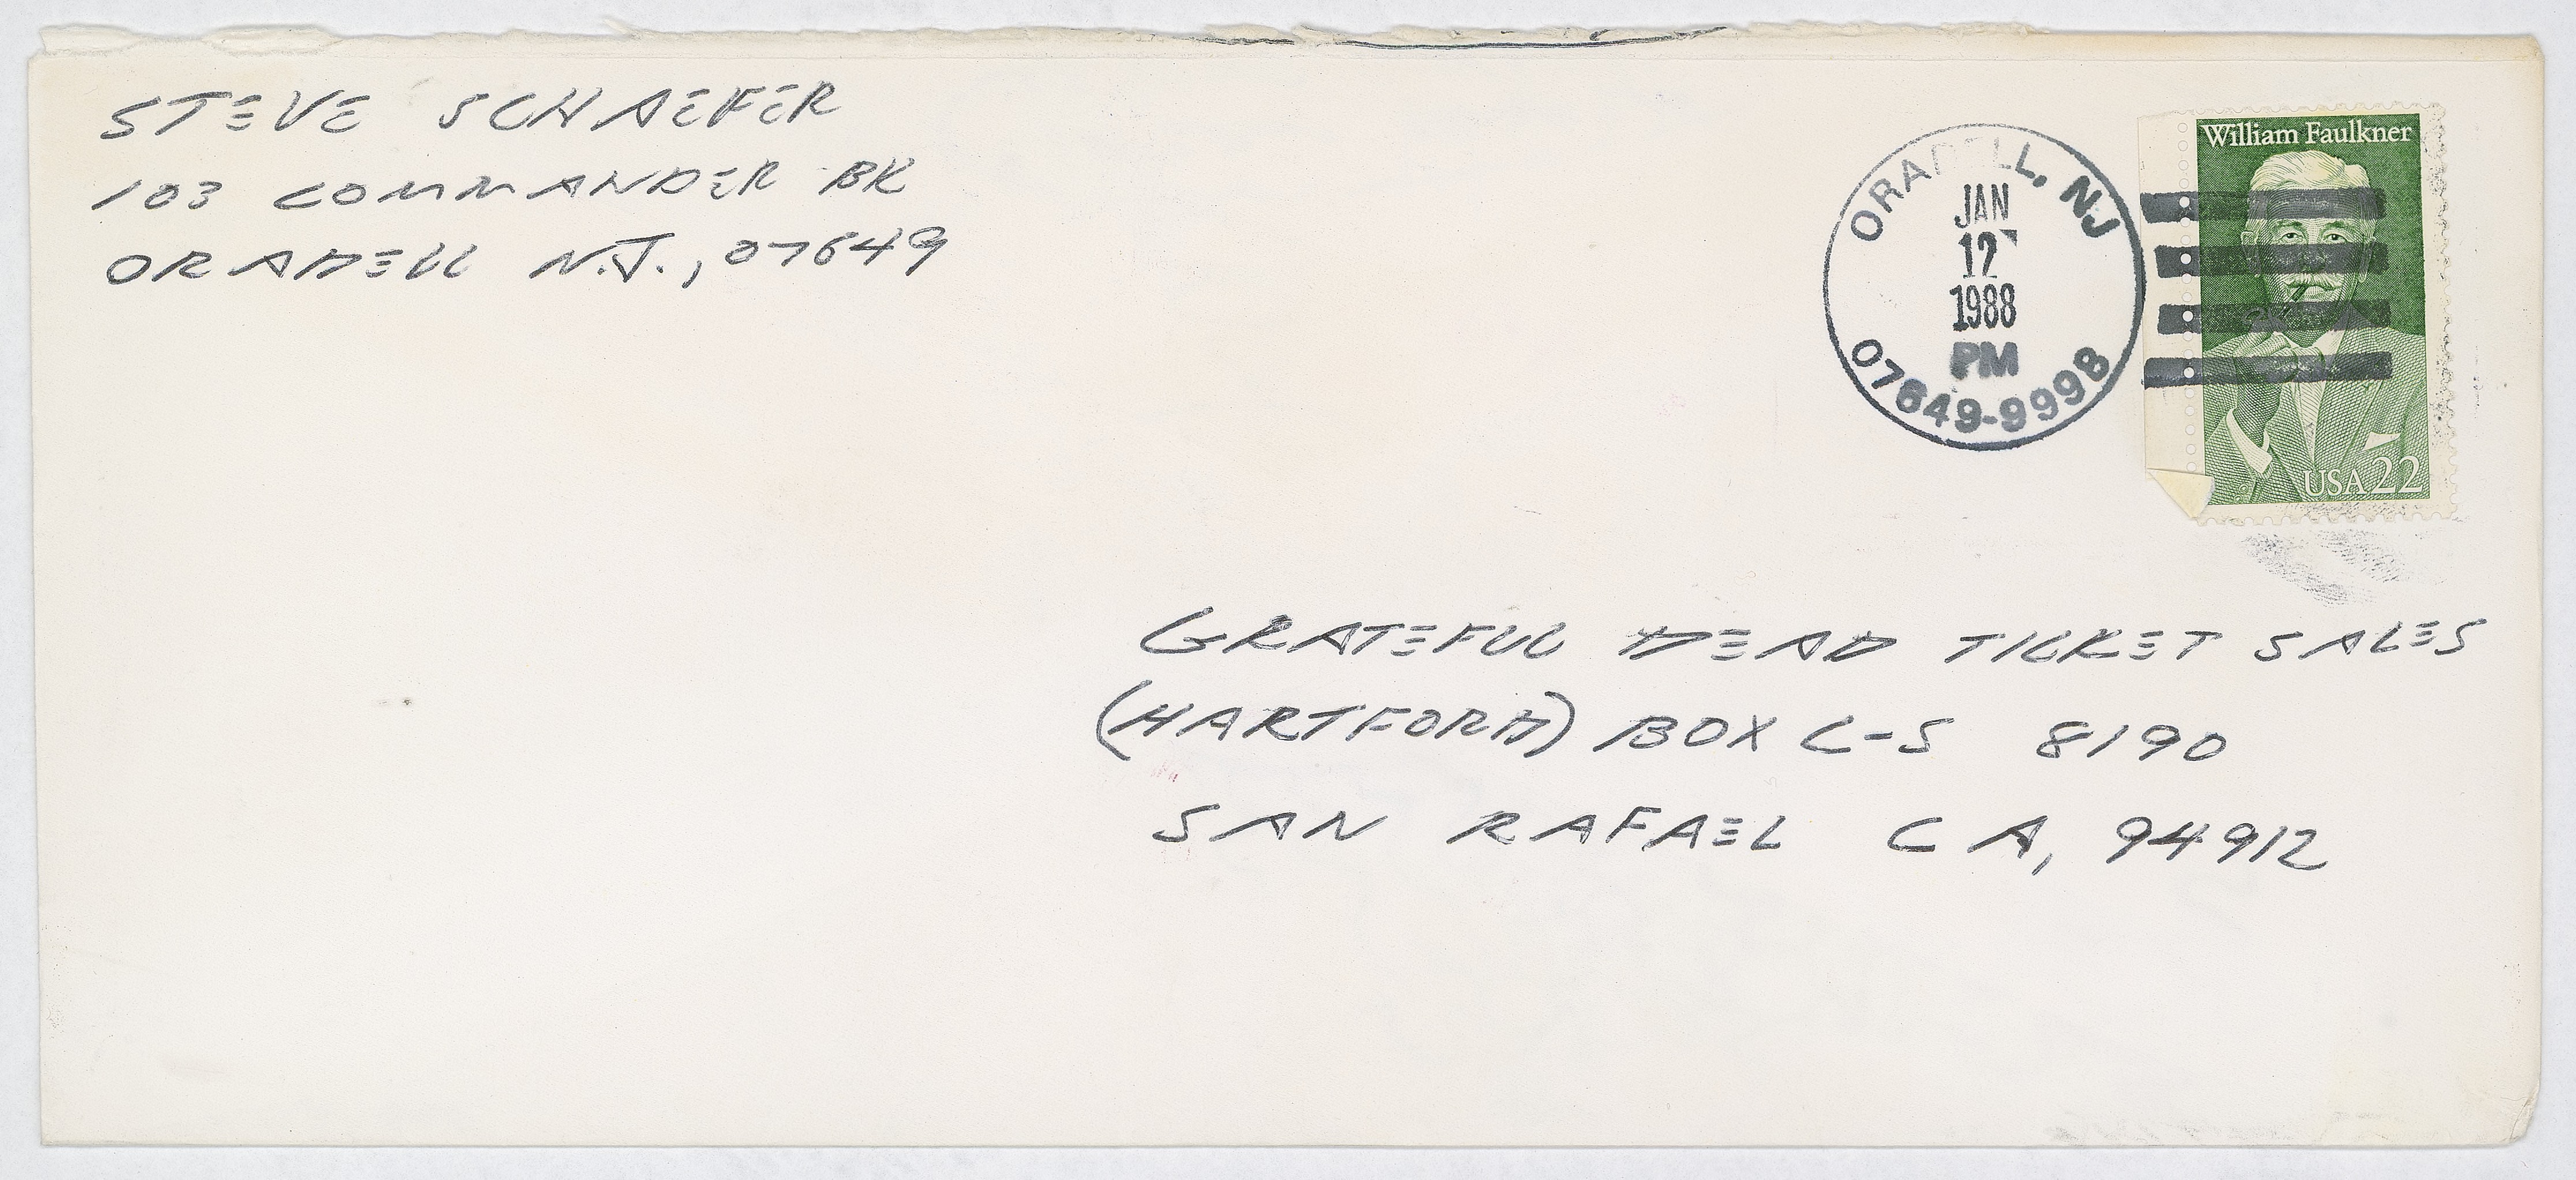 STEVE SCHAEFER
103 COMMANDER BK
ORADELL N.J., 07649
ORADELL, NJ
JAN
12
1988
PM
07649-9998
William Faulkner
USA 22
GRATEFUL DEAD TICKET SALES
(HARTFORD) BOX C-S 8190
SAN RAFAEL CA, 94912